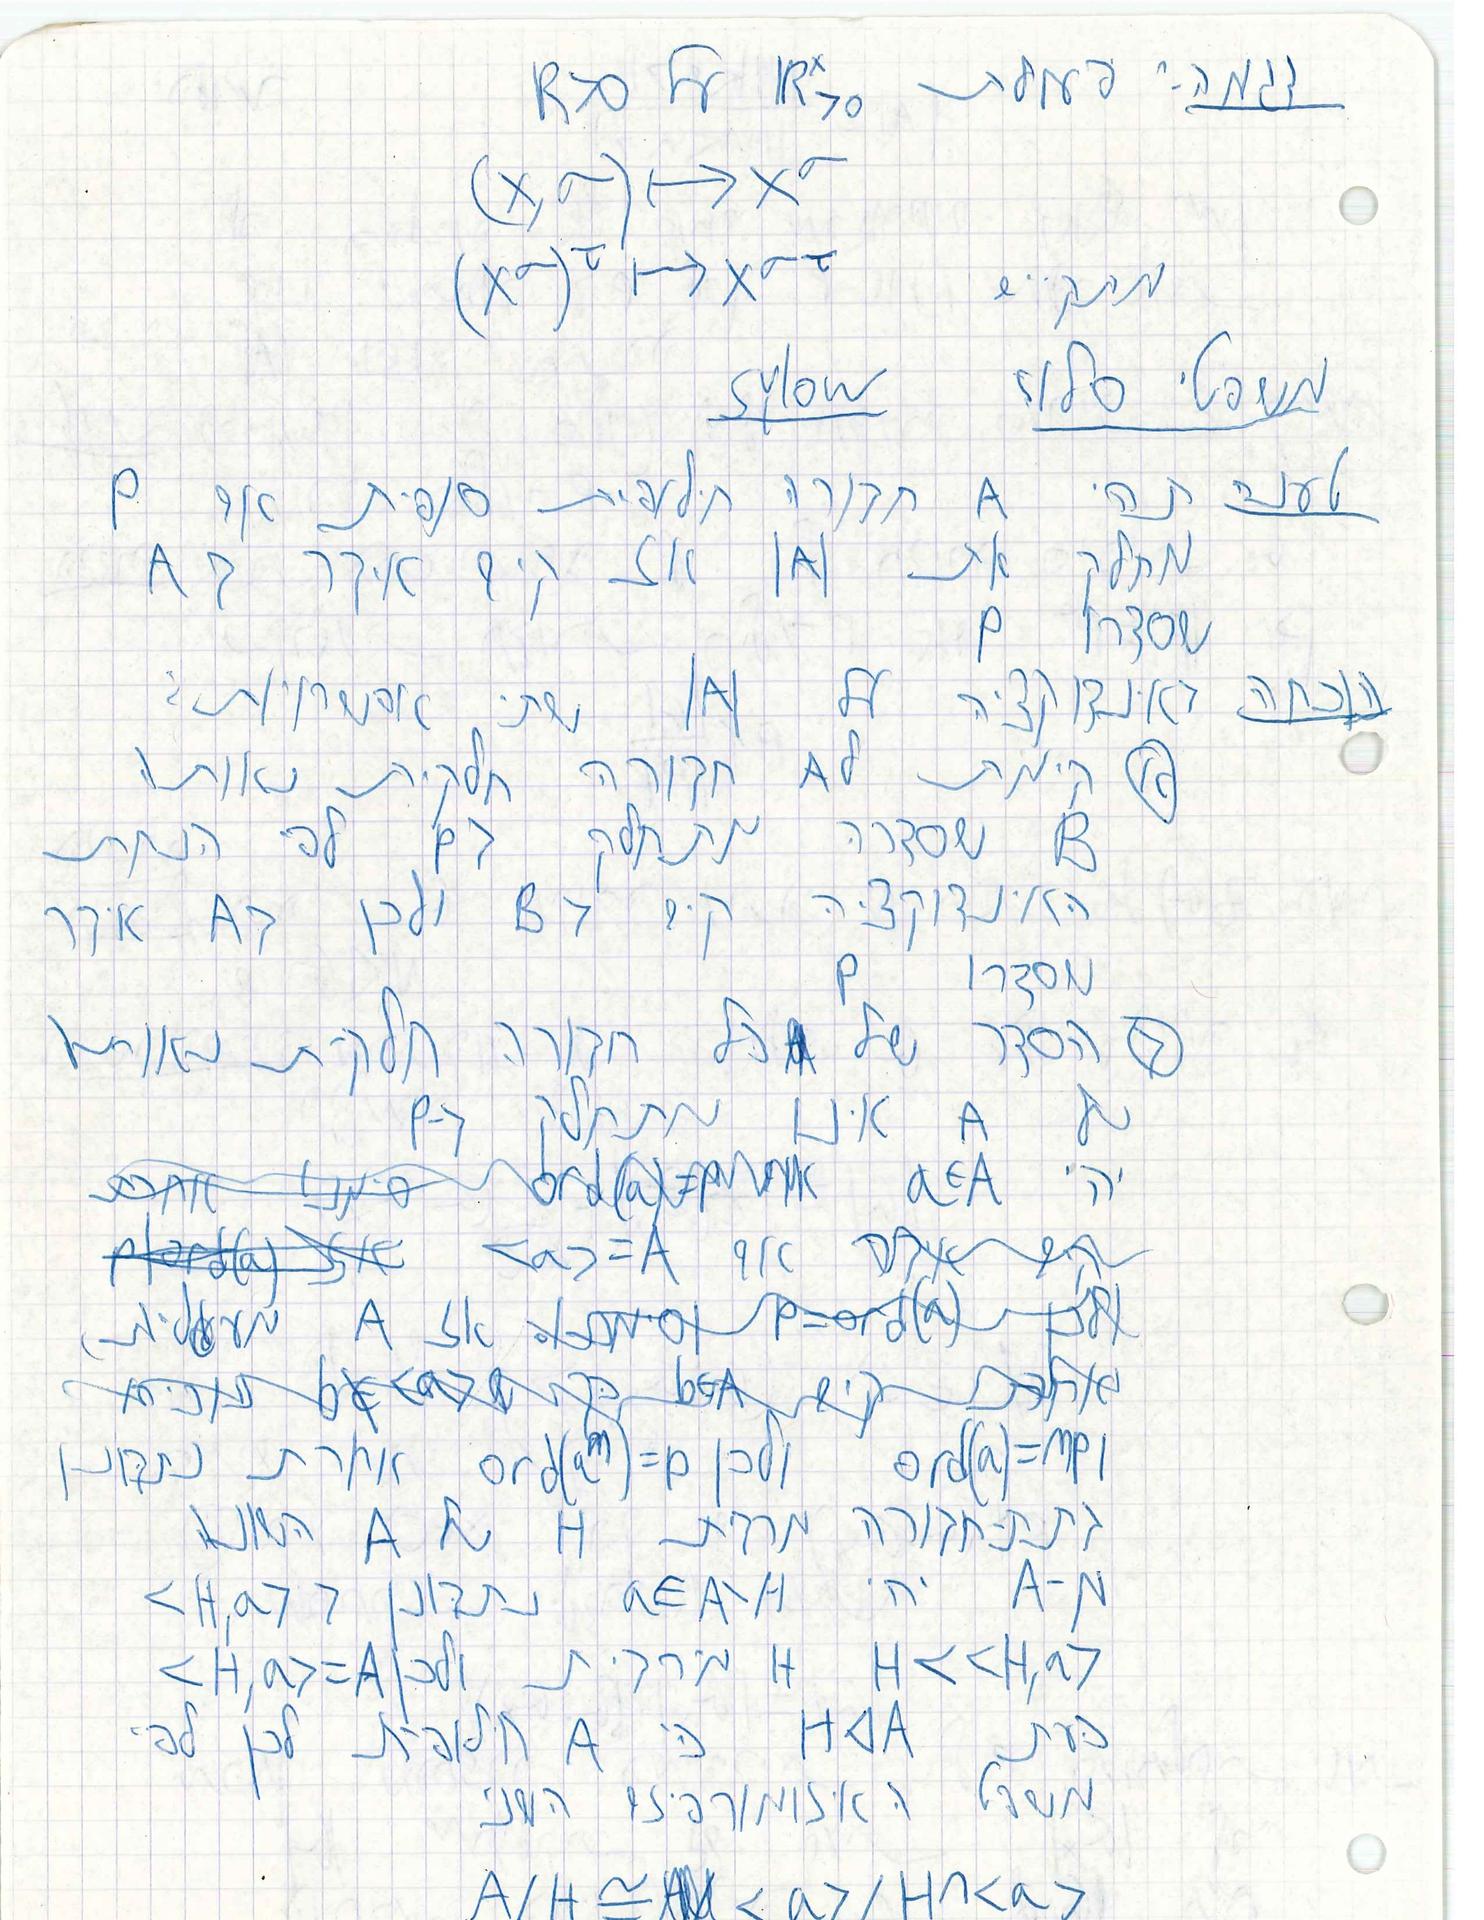 דגמה:- פעולת ℝ^x_>0 על ℝ>0
(x,σ) ↦ x^σ
(x^σ)^τ ↦ x^στ מתקיים
משפטי סלוו Sylow
טענה תהי A חבורה חילופית סופית אם P
מחלק את |A| אז קיים איבר ב A
שסדרו P
הוכחה באינדוקציה על |A| שתי אפשרויות:
א קימת ל A חבורה חלקית נאותה
B שסדרה מתחלק ב P לפי הנחת
האינדוקציה קיים ב B ולכן ב A איבר
מסדרו P
ב הסדר של כל חבורה חלקית נאותה
של A אינו מתחלק ב-P
יהי a∈A
אם <a>=A
אז A מעגלית
ord(a)=mp ולכן ord(a^m)=p אחרת נתבונן
בתת-חבורה מרבית H של A השונה
מ-A יהי a∈A∖H נתבונן ב <H,a>
H<<H,a> H מירבית ולכן <H,a>=A
כעת H⊲A כי A חילופית לכן לפי
משפט האיזומורפיזם השני
A/H ≅ <a>/H∩<a>